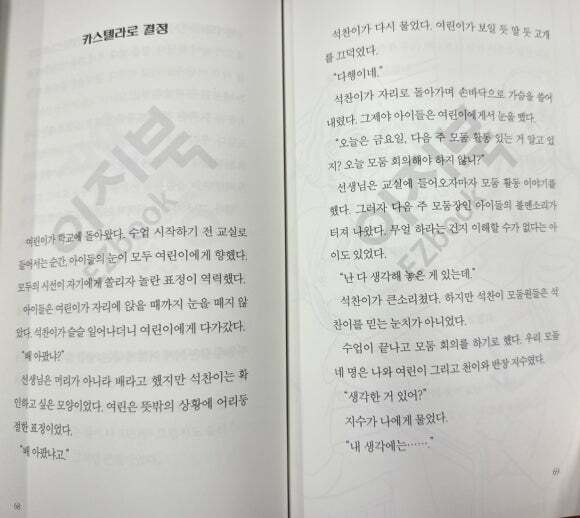 카스텔라로 결정
여린이가 학교에 돌아왔다. 수업 시작하기 전 교실로
들어서는 순간, 아이들의 눈이 모두 여린이에게 향했다.
모두의 시선이 자기에게 쏠리자 놀란 표정이 역력했다.
아이들은 여린이가 자리에 앉을 때까지 눈을 떼지 않
았다. 석찬이가 슬슬 일어나더니 여린이에게 다가갔다.
“배 아팠냐?”
선생님은 머리가 아니라 배라고 했지만 석찬이는 확
인하고 싶은 모양이었다. 여린은 뜻밖의 상황에 어리둥
절한 표정이었다.
“배 아팠냐고.”
68
석찬이가 다시 물었다. 여린이가 보일 듯 말 듯 고개
를 끄덕였다.
“다행이네.”
석찬이가 자리로 돌아가며 손바닥으로 가슴을 쓸어
내렸다. 그제야 아이들은 여린이에게서 눈을 뗐다.
“오늘은 금요일, 다음 주 모둠 활동 있는 거 알고 있
지? 오늘 모둠 회의해야 하지 않니?”
선생님은 교실에 들어오자마자 모둠 활동 이야기를
했다. 그러자 다음 주 모둠장인 아이들의 볼멘소리가
터져 나왔다. 무얼 하라는 건지 이해할 수가 없다는 아
이도 있었다.
“난 다 생각해 놓은 게 있는데.”
석찬이가 큰소리쳤다. 하지만 석찬이 모둠원들은 석
찬이를 믿는 눈치가 아니었다.
수업이 끝나고 모둠 회의를 하기로 했다. 우리 모둠
네 명은 나와 여린이 그리고 천이와 반장 지수였다.
“생각한 거 있어?”
지수가 나에게 물었다.
“내 생각에는…….”
69
이지북
EZbook
이지북
EZbook